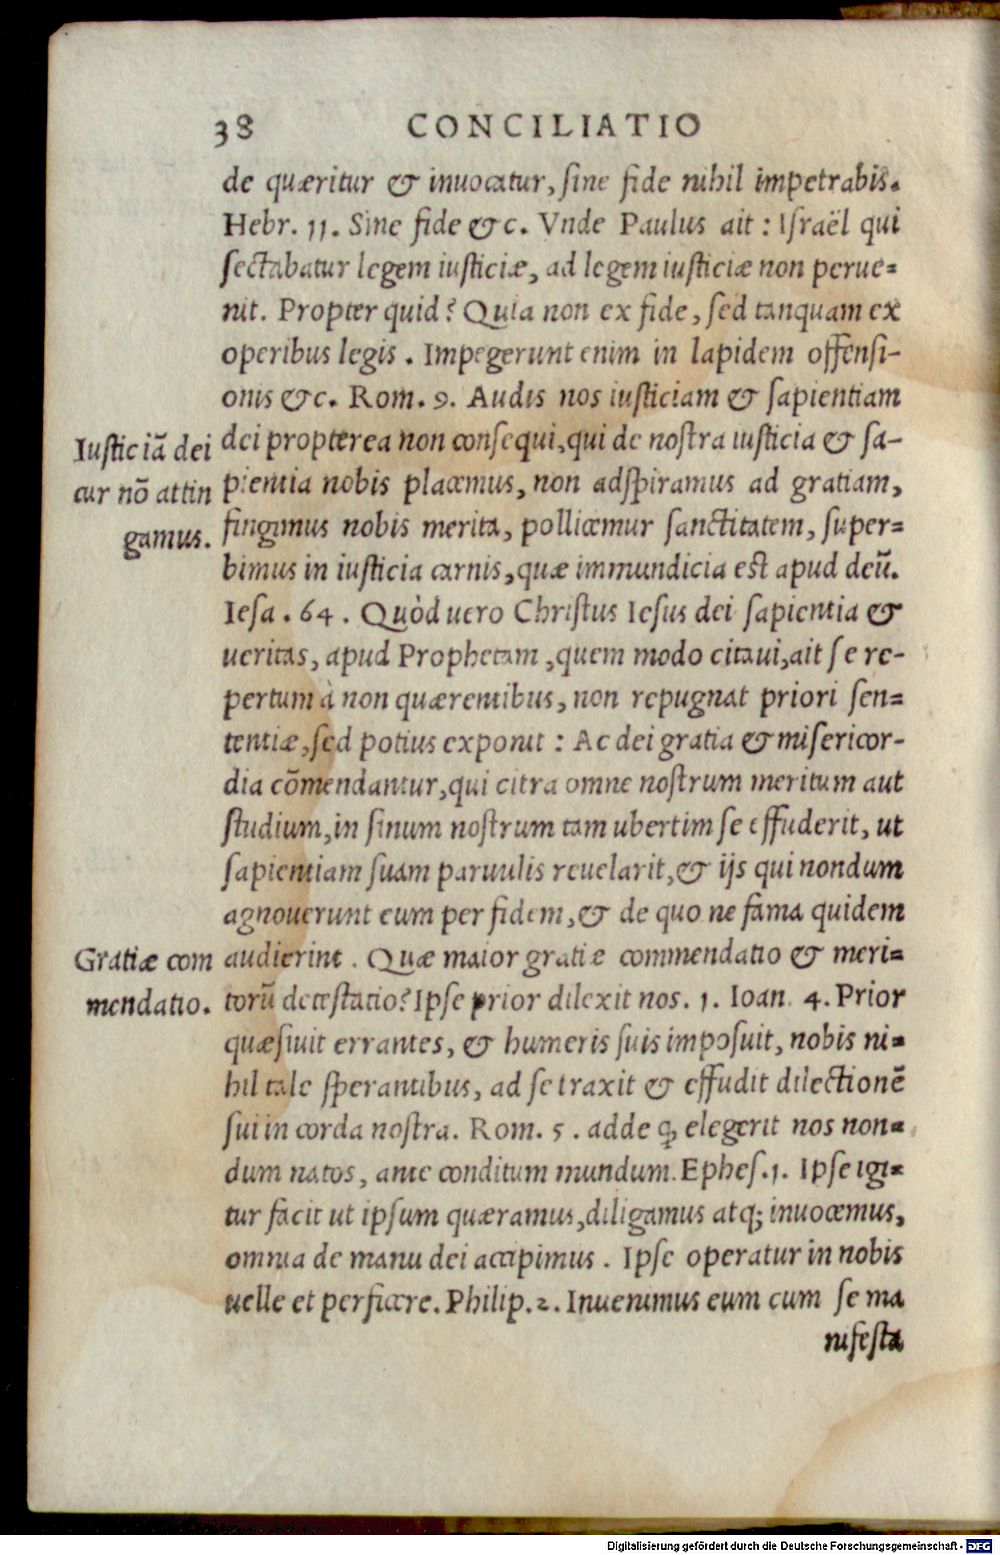 38 CONCILIATIO
de quæritur & inuocatur, sine fide nihil impetrabis.
Hebr. 11. Sine fide &c. Vnde Paulus ait : Israël qui
sectabatur legem iusticiæ, ad legem iusticiæ non perue=
nit. Propter quid? Quia non ex fide, sed tanquam ex
operibus legis . Impegerunt enim in lapidem offensi-
onis &c. Rom. 9. Audis nos iusticiam & sapientiam
Iusticiā dei
cur nō attin
gamus.
dei propterea non consequi, qui de nostra iusticia & sa-
pientia nobis placemus, non adspiramus ad gratiam,
fingimus nobis merita, pollicemur sanctitatem, super=
bimus in iusticia carnis, quæ immundicia est apud deū.
Iesa . 64 . Quòd uero Christus Iesus dei sapientia &
ueritas, apud Prophetam , quem modo citaui, ait se re-
pertum à non quærentibus, non repugnat priori sen=
tentiæ, sed potius exponit : Ac dei gratia & misericor-
dia cōmendantur, qui citra omne nostrum meritum aut
studium, in sinum nostrum tam ubertim se effuderit, ut
sapientiam suam paruulis reuelarit, & ijs qui nondum
agnouerunt eum per fidem, & de quo ne fama quidem
Gratiæ com
mendatio.
audierint . Quæ maior gratiæ commendatio & meri=
torū detestatio? Ipse prior dilexit nos. 1. Ioan. 4. Prior
quæsiuit errantes, & humeris suis imposuit, nobis ni=
hil tale sperantibus, ad se traxit & effudit dilectionē
sui in corda nostra. Rom. 5 . adde ꝙ elegerit nos non=
dum natos, ante conditum mundum. Ephes. 1. Ipse igi=
tur facit ut ipsum quæramus, diligamus atq; inuocemus,
omnia de manu dei accipimus . Ipse operatur in nobis
uelle et perficere. Philip. 2. Inuenimus eum cum se ma
nifesta
Digitalisierung gefördert durch die Deutsche Forschungsgemeinschaft - DFG